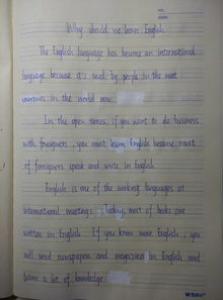 Why should we learn English
The English language has become an international
language because it's used by people in the most
countries in the world now.
In the open times, if you want to do business
with foreigners, you must learn English because most
of foreigners speak and write in English.
English is one of the working languages at
international meetings. Today, most of books are
written in English. If you know more English, you
will read newspapers and magazines in English and
learn a lot of knowledge.